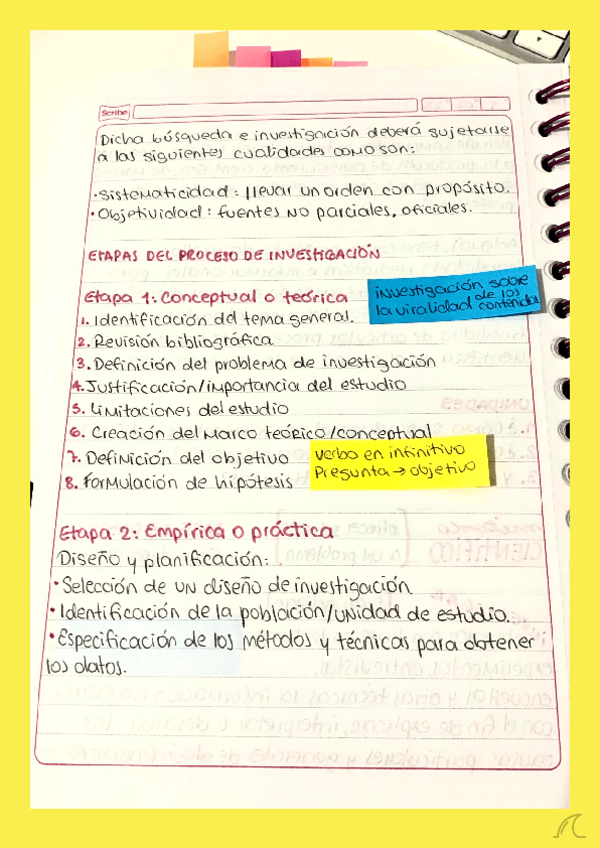 Scribe
Dicha búsqueda e investigación deberá sujetarse
a las siguientes cualidades como son:
• Sistematicidad: llevar un orden con propósito.
• Objetividad: fuentes NO parciales, oficiales.
ETAPAS DEL PROCESO DE INVESTIGACIÓN
Etapa 1: Conceptual o teórica
investigación sobre
la viralidad de los
contenido
1. Identificación del tema general.
2. Revisión bibliográfica
3. Definición del problema de investigación
4. Justificación/importancia del estudio
5. Limitaciones del estudio
6. Creación del Marco teórico/conceptual
7. Definición del objetivo
8. Formulación de hipótesis
verbo en infinitivo
Pregunta → objetivo
Etapa 2: Empírica o práctica
Diseño y planificación:
• Selección de un diseño de investigación.
• Identificación de la población/unidad de estudio.
• Especificación de los métodos y técnicas para obtener
los datos.